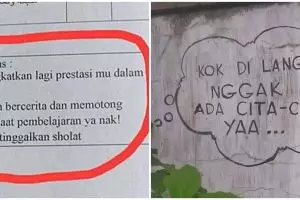 as :
gkatkan lagi prestasi mu dalam
n bercerita dan memotong
aat pembelajaran ya nak!
tinggalkan sholat
KOK DI LANG
NGGAK
ADA CITA-C
YAA ...